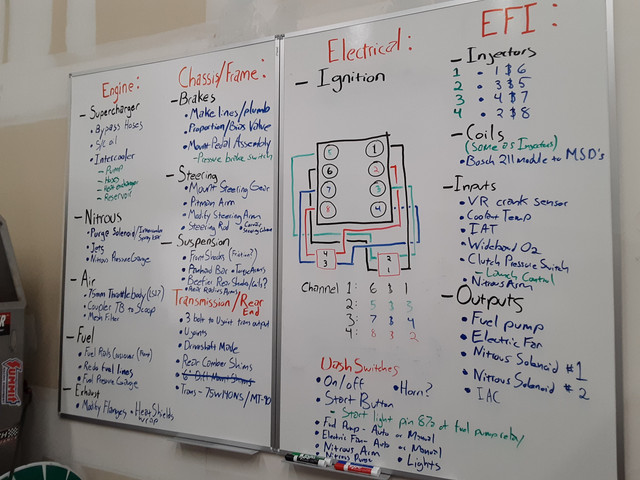 Engine:
- Supercharger
• Bypass Hoses
• S/C oil
• Intercooler
- Pump
- Hoses
- Heat exchanger
- Reservoir
- Nitrous
• Purge Solenoid/Intercooler
Spray bar
• Jets
• Nitrous Pressure Gauge
- Air
• 75mm Throttle body (LS2?)
• Coupler TB to Scoop
• Mesh Filter
- Fuel
• Fuel Rails Crossover (Port)
• Redo fuel lines
• Fuel Pressure Gauge
- Exhaust
• Modify Flanges • Heat Shields
wrap
Chassis/Frame:
- Brakes
• Make lines/plumb
• Proportion/Bias Valve
• Mount Pedal Assembly
- Pressure brake switch
- Steering
• Mount Steering Gear
• Pitman Arm
• Modify Steering Arm
• Steering Rod
- Suspension
• Front Shocks (Friction?)
• Panhard Bar
• Beefier Rear Shocks/coils?
• Rear Radius Arms
Transmission/Rear
End
• 3 bolt to Ujoint trans output
• Ujoints
• Driveshaft Made
• Rear Camber Shims
• 6° Diff Mount Shims
• Trans - 75W MONS/MT-90
Electrical:
- Ignition
5 1
6 2
7 3
8 4
4 2
3 1
Channel 1: 6 $ 1
2: 5 $ 3
3: 7 $ 4
4: 8 $ 2
Dash Switches
• On/off • Horn?
• Start Button
- Start light pin 8?5 of fuel pump relay
• Fuel Pump - Auto or Manual
• Electric Fan - Auto or Manual
• Nitrous Arm • Lights
• Nitrous Purge
EFI:
- Injectors
1 • 1 $ 6
2 • 3 $ 5
3 • 4 $ 7
4 • 2 $ 8
- Coils
(Same as Injectors)
• Bosch 211 module to MSD's
- Inputs
• VR crank sensor
• Coolant Temp
• IAT
• Wideband O2
• Clutch Pressure Switch
- Launch Control
• Nitrous Arm
- Outputs
• Fuel pump
• Electric Fan
• Nitrous Solanoid #1
• Nitrous Solanoid #2
• IAC
SUMMIT